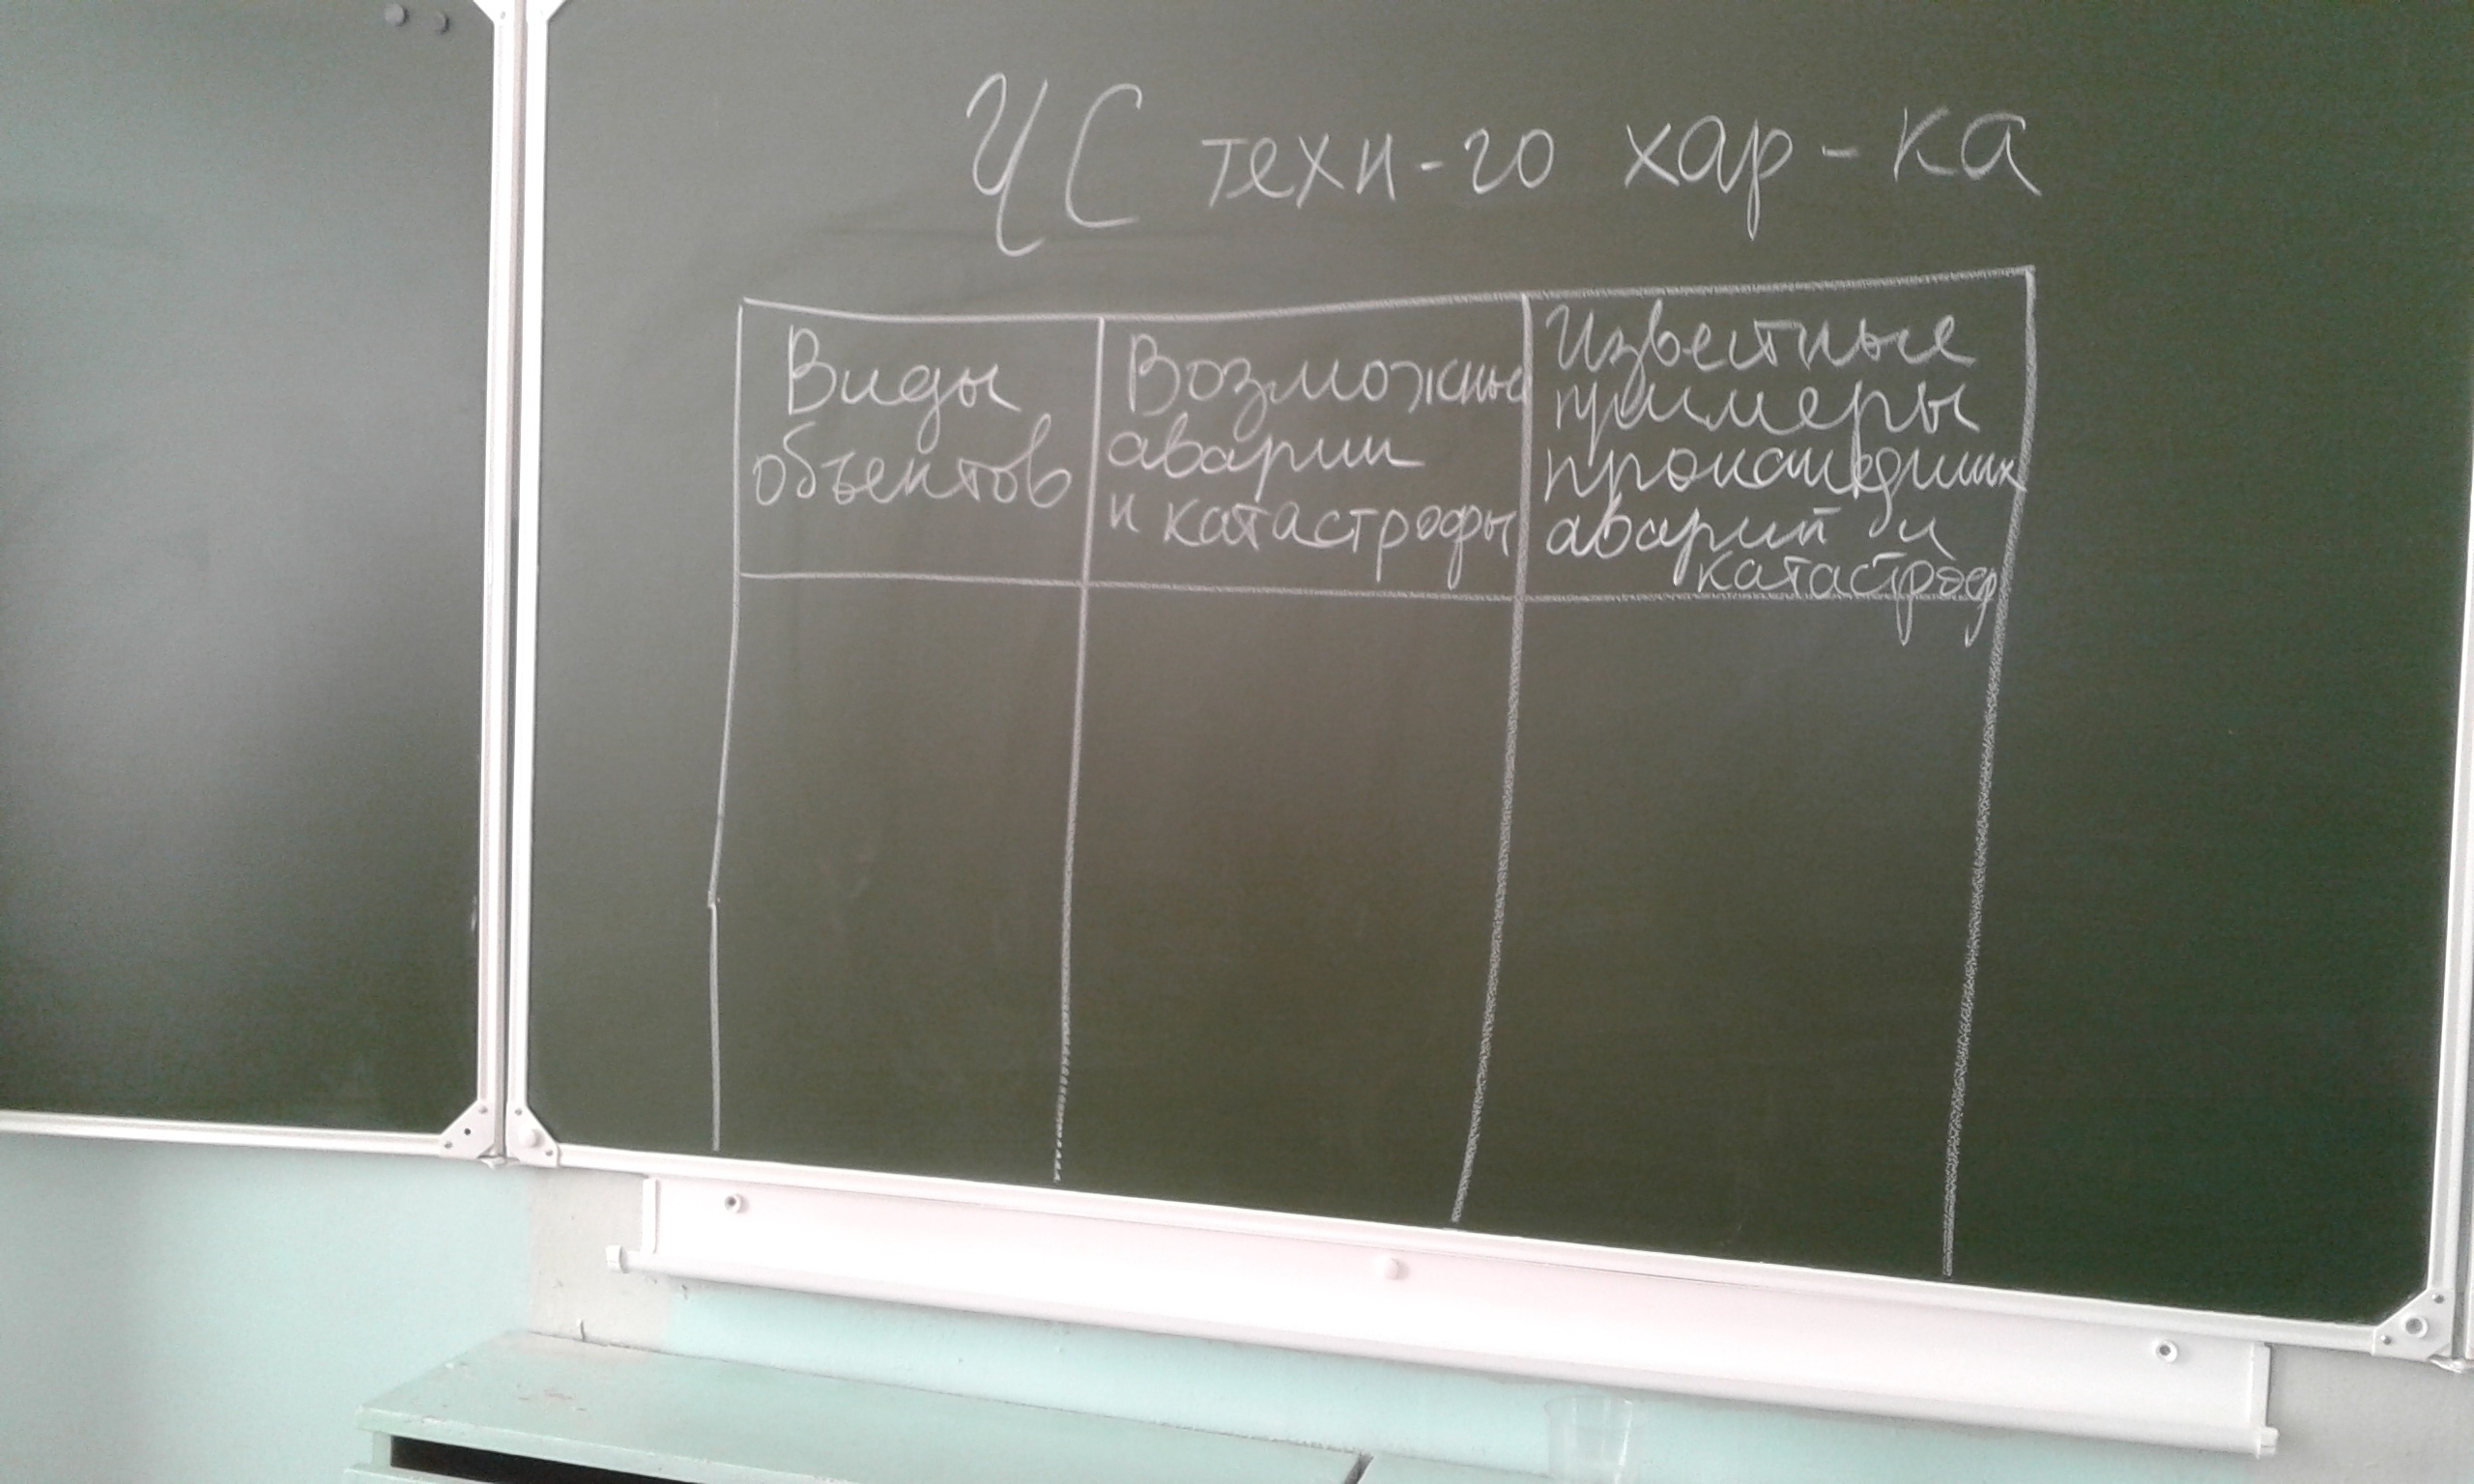 ЧС техн-го хар-ка
Виды
объектов
Возможные
аварии
и катастрофы
Известные
примеры
происшедших
аварий и
катастроф